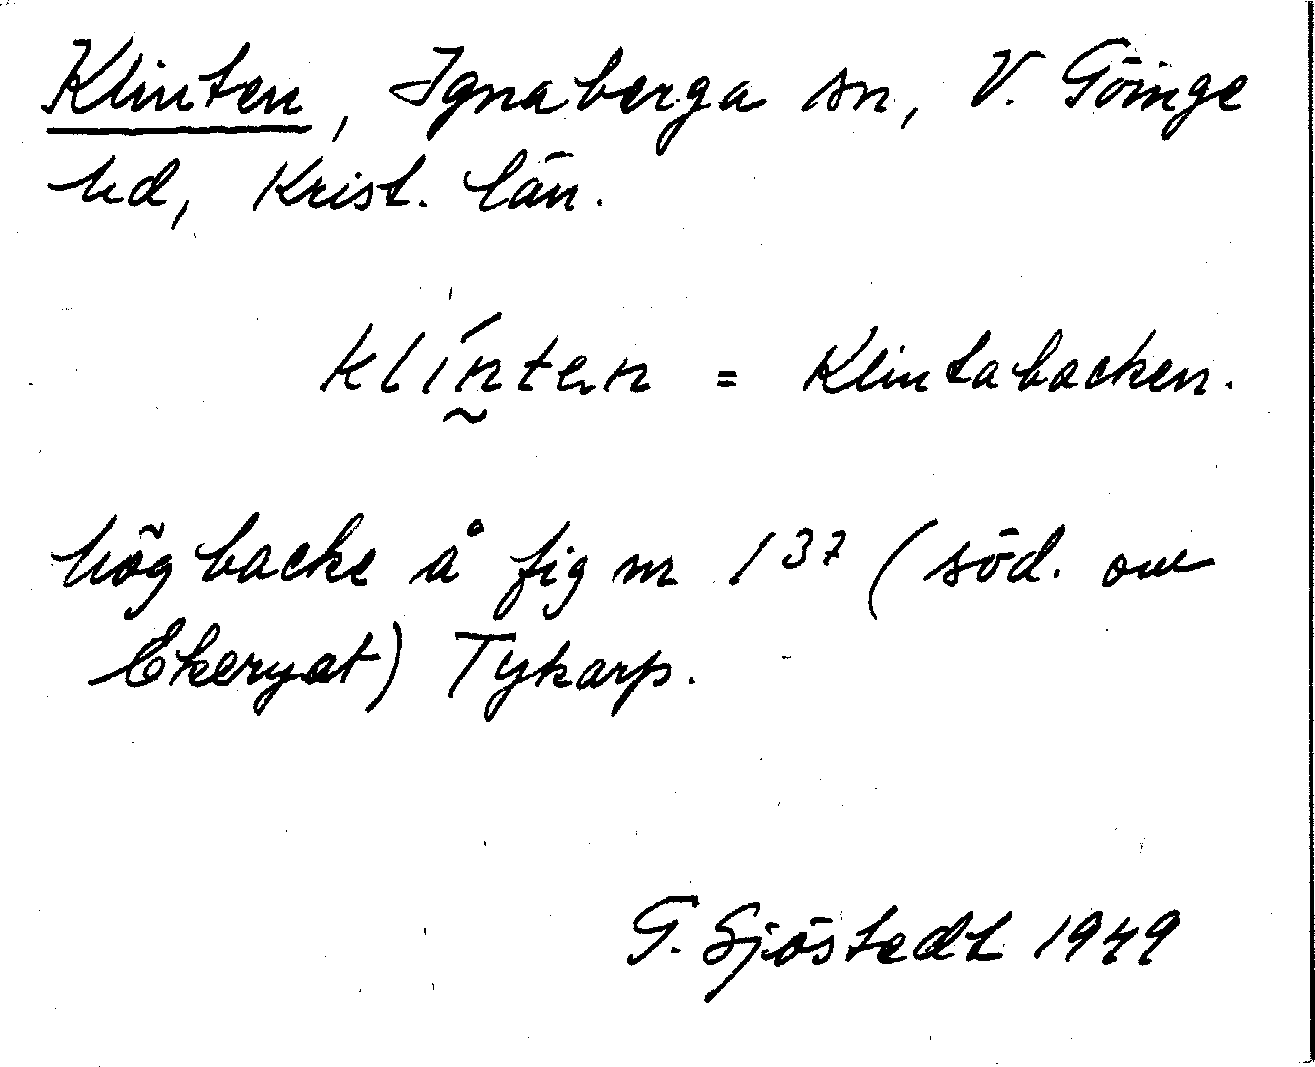 Klinten, Ignaberga sn, V. Göinge
hd, Krist. län.
klín̰ten = Klintabacken.
hög backe å fig nr 137 (söd. om
Ekeryat) Tykarp.
G. Sjöstedt 1949